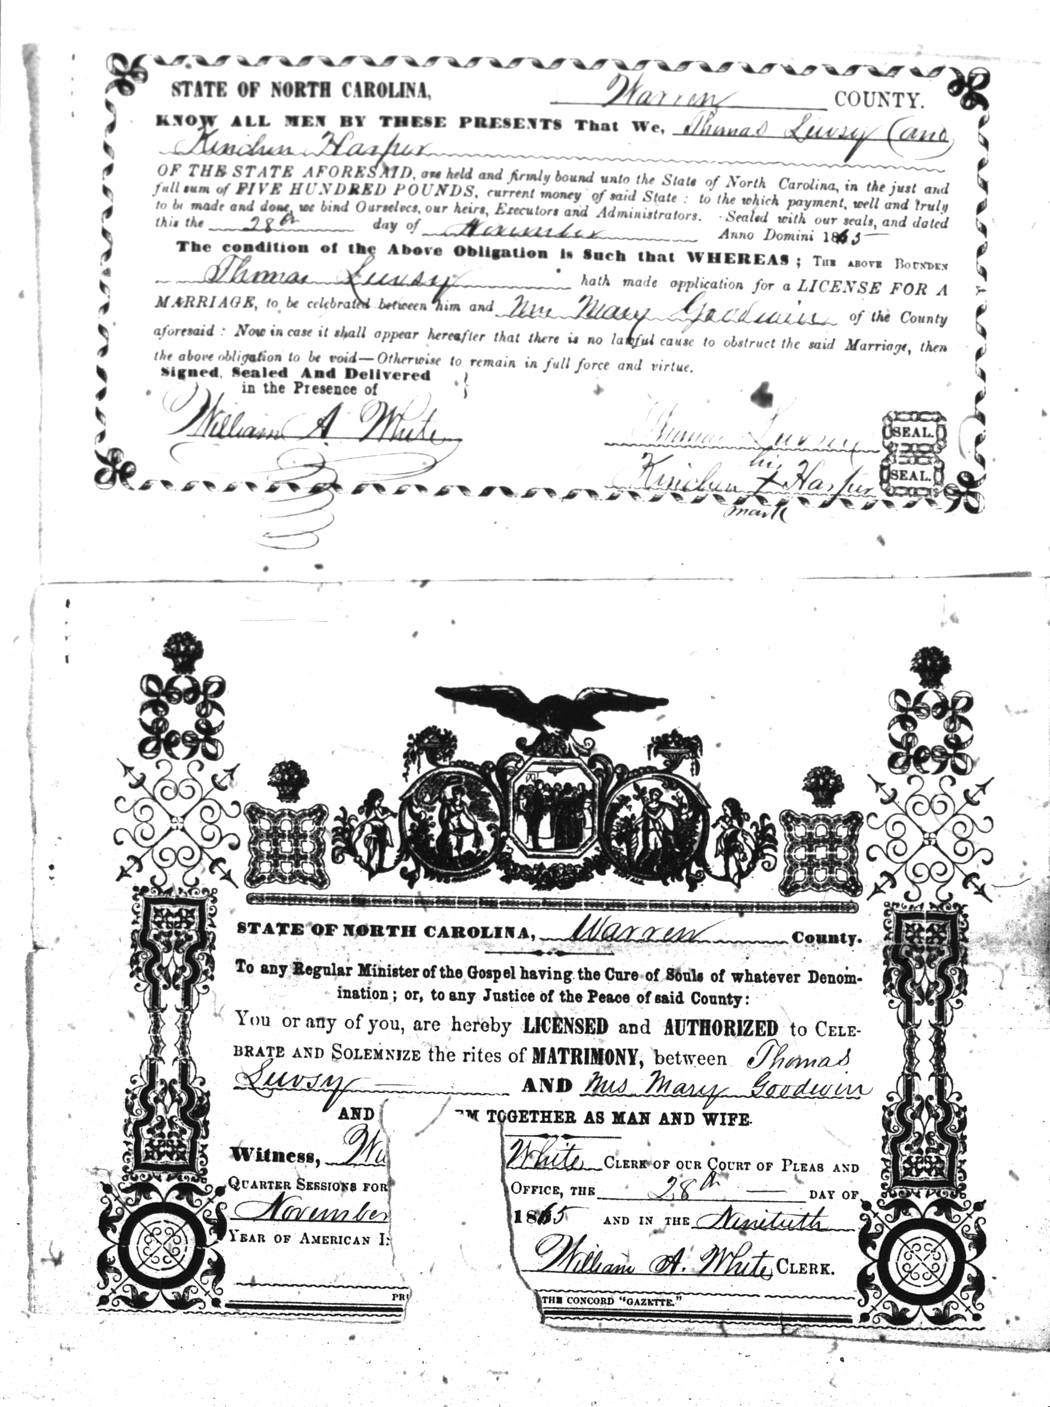 STATE OF NORTH CAROLINA, Warren COUNTY.
KNOW ALL MEN BY THESE PRESENTS That We, Thomas Livsy (and
Kinchen Harper
OF THE STATE AFORESAID, are held and firmly bound unto the State of North Carolina, in the just and
full sum of FIVE HUNDRED POUNDS, current money of said State: to the which payment, well and truly
to be made and done, we bind Ourselves, our heirs, Executors and Administrators. Sealed with our seals, and dated
this the 28th day of November Anno Domini 1865
The condition of the Above Obligation is Such that WHEREAS; THE ABOVE BOUNDEN
Thomas Livsy hath made application for a LICENSE FOR A
MARRIAGE, to be celebrated between him and Mrs Mary Goodwin of the County
aforesaid: Now in case it shall appear hereafter that there is no lawful cause to obstruct the said Marriage, then
the above obligation to be void—Otherwise to remain in full force and virtue.
Signed, Sealed And Delivered
in the Presence of
William A. White
Thomas Livsey SEAL.
his
Kinchen X Harper SEAL.
mark
STATE OF NORTH CAROLINA, Warren County.
To any Regular Minister of the Gospel having the Cure of Souls of whatever Denom-
ination; or, to any Justice of the Peace of said County:
You or any of you, are hereby LICENSED and AUTHORIZED to CELE-
BRATE AND SOLEMNIZE the rites of MATRIMONY, between Thomas
Livsy AND Mrs Mary Goodwin
AND EM TOGETHER AS MAN AND WIFE.
Witness, White CLERK OF OUR COURT OF PLEAS AND
QUARTER SESSIONS FOR OFFICE, THE 28th DAY OF
November 1865 AND IN THE Ninetieth
YEAR OF AMERICAN I
William A. White CLERK.
THE CONCORD "GAZETTE."